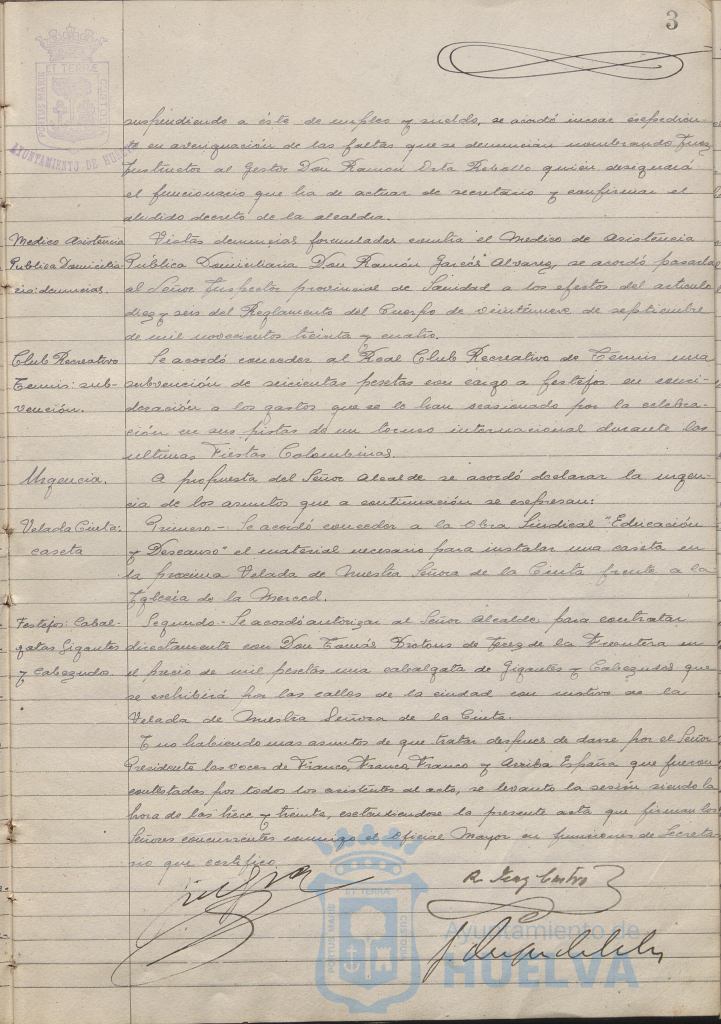 3
PORTUS MARIS ET TERRÆ CUSTODIA
AYUNTAMIENTO DE HUELVA
suspendiendo a éste de empleo y sueldo, se acordó incoar expedien-
te en averiguación de las faltas que se denuncian nombrando Juez
Instructor al Gestor Don Ramon Orta Rebollo quién designará
el funcionario que ha de actuar de secretario y confirmar el
aludido decreto de la alcaldia.
Medico Asistencia
Publica Domicilia
ria: denuncias.
Vistas denuncias formuladas contra el Medico de Asistencia
Pública Domiciliaria Don Ramón Garcés Alvarez, se acordó pasarlas
al Señor Inspector provincial de Sanidad a los efectos del articulo
diez y seis del Reglamento del Cuerpo de veintinueve de septiembre
de mil novecientos treinta y cuatro.
Club Recreativo
Tennis: sub-
vención.
Se acordó conceder al Real Club Recreativo de Tennis una
subvención de seicientas pesetas con cargo a festejos en consi-
deración a los gastos que se le han ocasionado por la celebra-
ción en sus pistas de un torneo internacional durante las
ultimas Fiestas Colombinas.
Urgencia.
A propuesta del Señor Alcalde se acordó declarar la urgen-
cia de los asuntos que a continuación se expresan:
Velada Cinta:
caseta
Primero.- Se acordó conceder a la Obra Sindical "Educación
y Descanso" el material necesario para instalar una caseta en
la proxima Velada de Nuestra Señora de la Cinta frente a la
Iglesia de la Merced.
Festejos: Cabal-
gatas Gigantes
y Cabezudos.
Segundo- Se acordó autorizar al Señor Alcalde para contratar
directamente con Don Tomás de Jerez de la Frontera en
el precio de mil pesetas una cabalgata de Gigantes y Cabezudos que
se exhibirá por las calles de la ciudad con motivo de la
Velada de Nuestra Señora de la Cinta.
Y no habiendo mas asuntos de que tratar despues de darse por el Señor
Presidente las voces de Franco, Franco, Franco y Arriba España que fueron
contestadas por todos los asistentes al acto, se levanto la sesión siendo la
hora de las trece y treinta, extendiendose la presente acta que firman los
Señores concurrentes conmigo el Oficial Mayor en funciones de Secreta-
rio que certifico.
PORTUS MARIS ET TERRÆ CUSTODIA
Ayuntamiento de
HUELVA